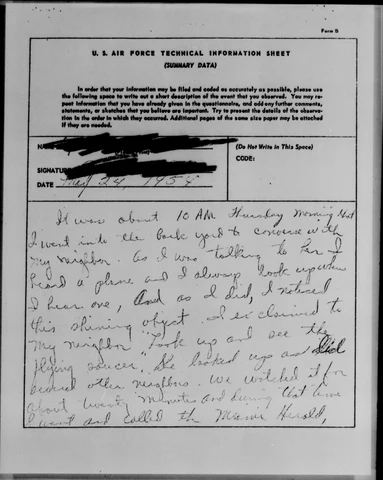 Form B
U. S. AIR FORCE TECHNICAL INFORMATION SHEET
(SUMMARY DATA)
In order that your information may be filed and coded as accurately as possible, please use
the following space to write out a short description of the event that you observed. You may re-
peat information that you have already given in the questionnaire, and add any further comments,
statements, or sketches that you believe are important. Try to present the details of the observa-
tion in the order in which they occurred. Additional pages of the same size paper may be attached
if they are needed.
(Do Not Write in This Space)
CODE:
SIGNATU
DATE May 24, 1954
It was about 10 AM Thursday Morning that
I went into the back yard to converse with
my neighbor. As I was talking to her I
heard a plane and I always look up when
I hear one, And as I did, I noticed
this shining object. I exclaimed to
my neighbor "Look up and see the
flying saucer". She looked up and did
several other neighbors. We watched it for
about twenty minutes and during that time
I went and called the Miami Herald,